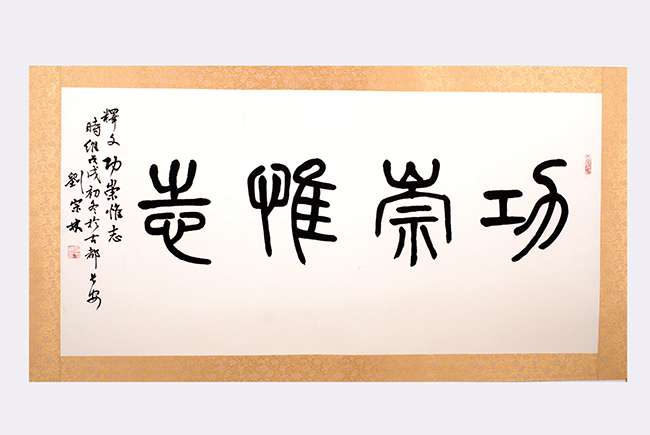 功崇惟志
釋文功崇惟志
時維戊戌初冬於古都長安
劉宗林